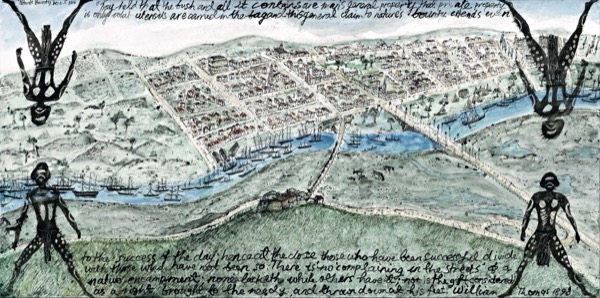 they hold that the bush and all it contains are man's general property that private property
is only what utensils are carried in the bag and this general claim to nature's bounty extends even
to the success of the day; hence at the close those who have been successful divide
with those who have not been so. There is 'no complaining in the streets' of a
native encampment; none lacketh while others have it; nor is the gift considered
as a right brought to the needy and thrown down at his feet. William Thomas 1898